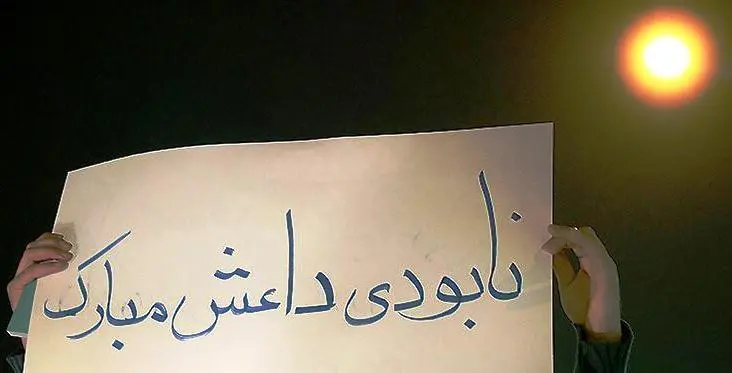 نابودی داعش مبارک